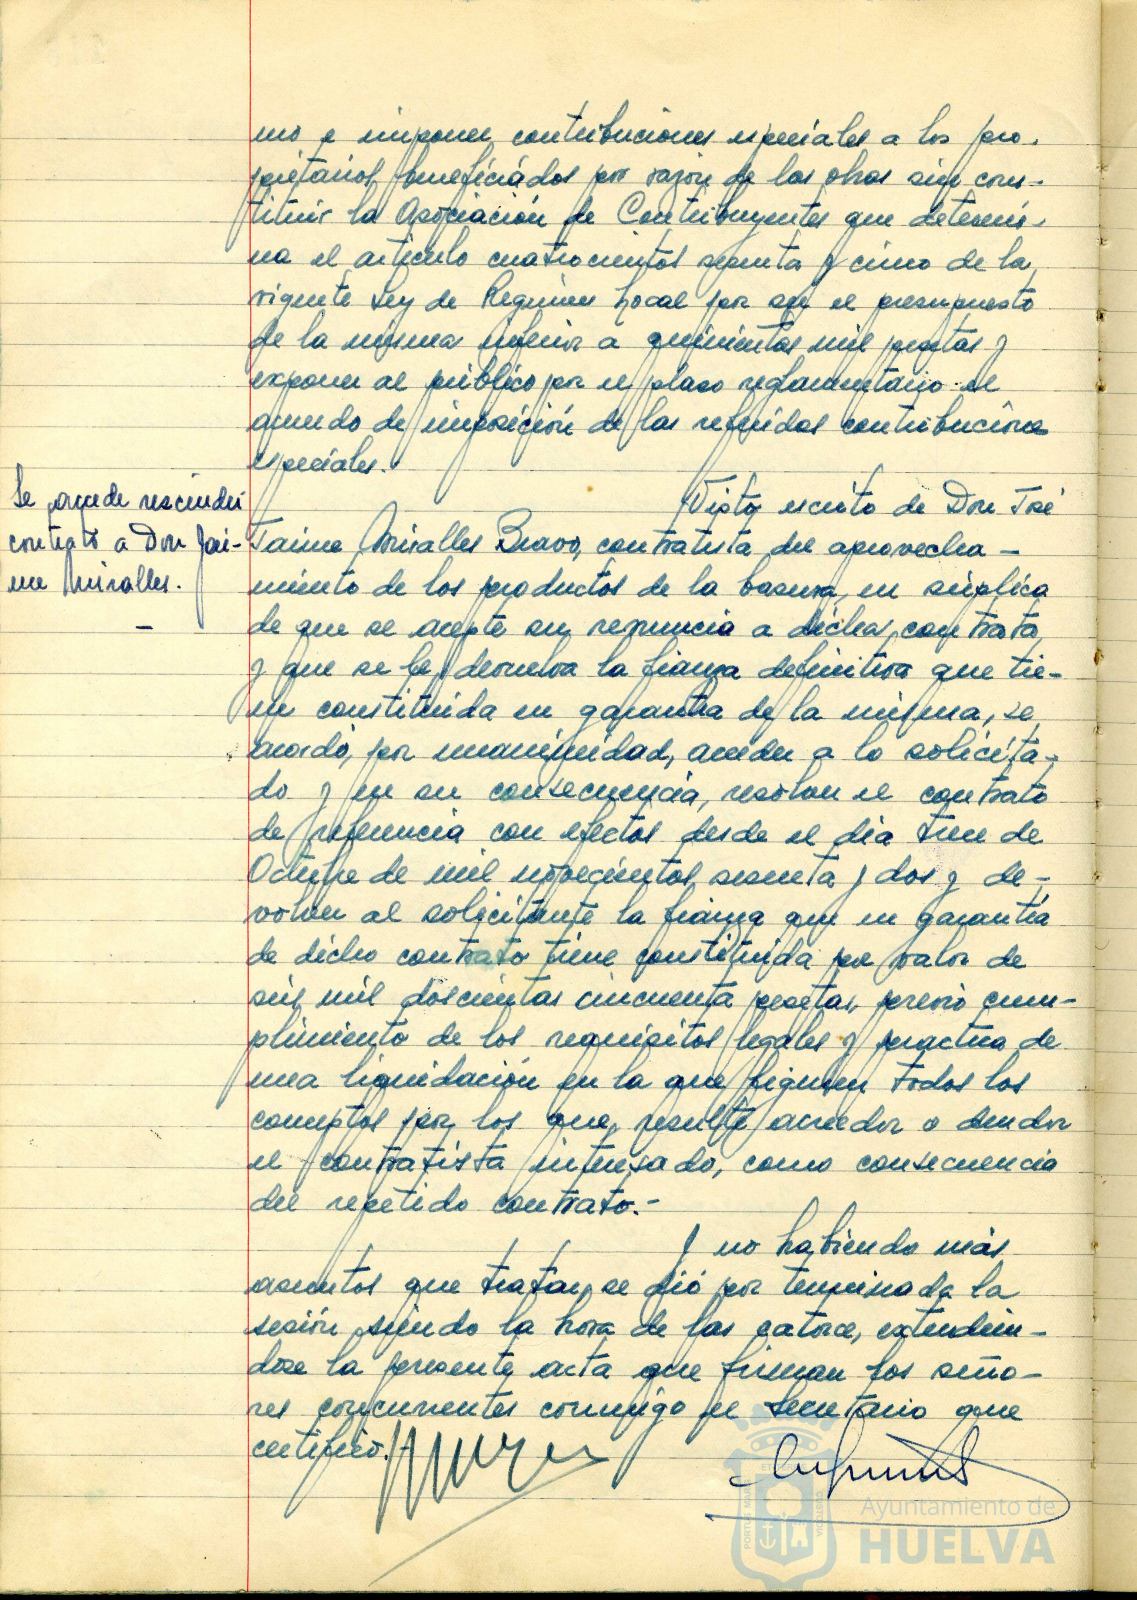 mo e imponer contribuciones especiales a los pro-
pietarios beneficiados por razón de las obras sin cons-
tituir la Asociación de Contribuyentes que determi-
na el artículo cuatrocientos setenta y cinco de la
vigente Ley de Regimen Local por ser el presupuesto
de la misma inferior a quinientas mil pesetas y
exponer al público por el plazo reglamentario el
acuerdo de imposición de las referidas contribuciones
especiales.-
Se acuerda rescindir
contrato a Don Jai-
me Miralles.
Visto escrito de Don José
Jaime Miralles Bravo, contratista del aprovecha-
miento de los productos de la basura, en súplica
de que se acepte su renuncia a dicha contrata
y que se le devuelva la fianza definitiva que tie-
ne constituida en garantia de la misma, se
acordó, por unanimidad, acceder a lo solicita-
do y en su consecuencia, resolver el contrato
de referencia con efectos desde el dia trece de
Octubre de mil novecientos sesenta y dos y de-
volver al solicitante la fianza que en garantia
de dicho contrato tiene constituida por valor de
seis mil doscientas cincuenta pesetas, previo cum-
plimiento de los requisitos legales y practica de
una liquidación en la que figuren todos los
conceptos por los que resulte acreedor o deudor
el contratista interesado, como consecuencia
del repetido contrato.-
Y no habiendo más
asuntos que tratar, se dió por terminada la
sesión siendo la hora de las catorce, extendien-
dose la presente acta que firman los seño-
res concurrentes conmigo el Secretario que
certifico.-
Ayuntamiento de
HUELVA